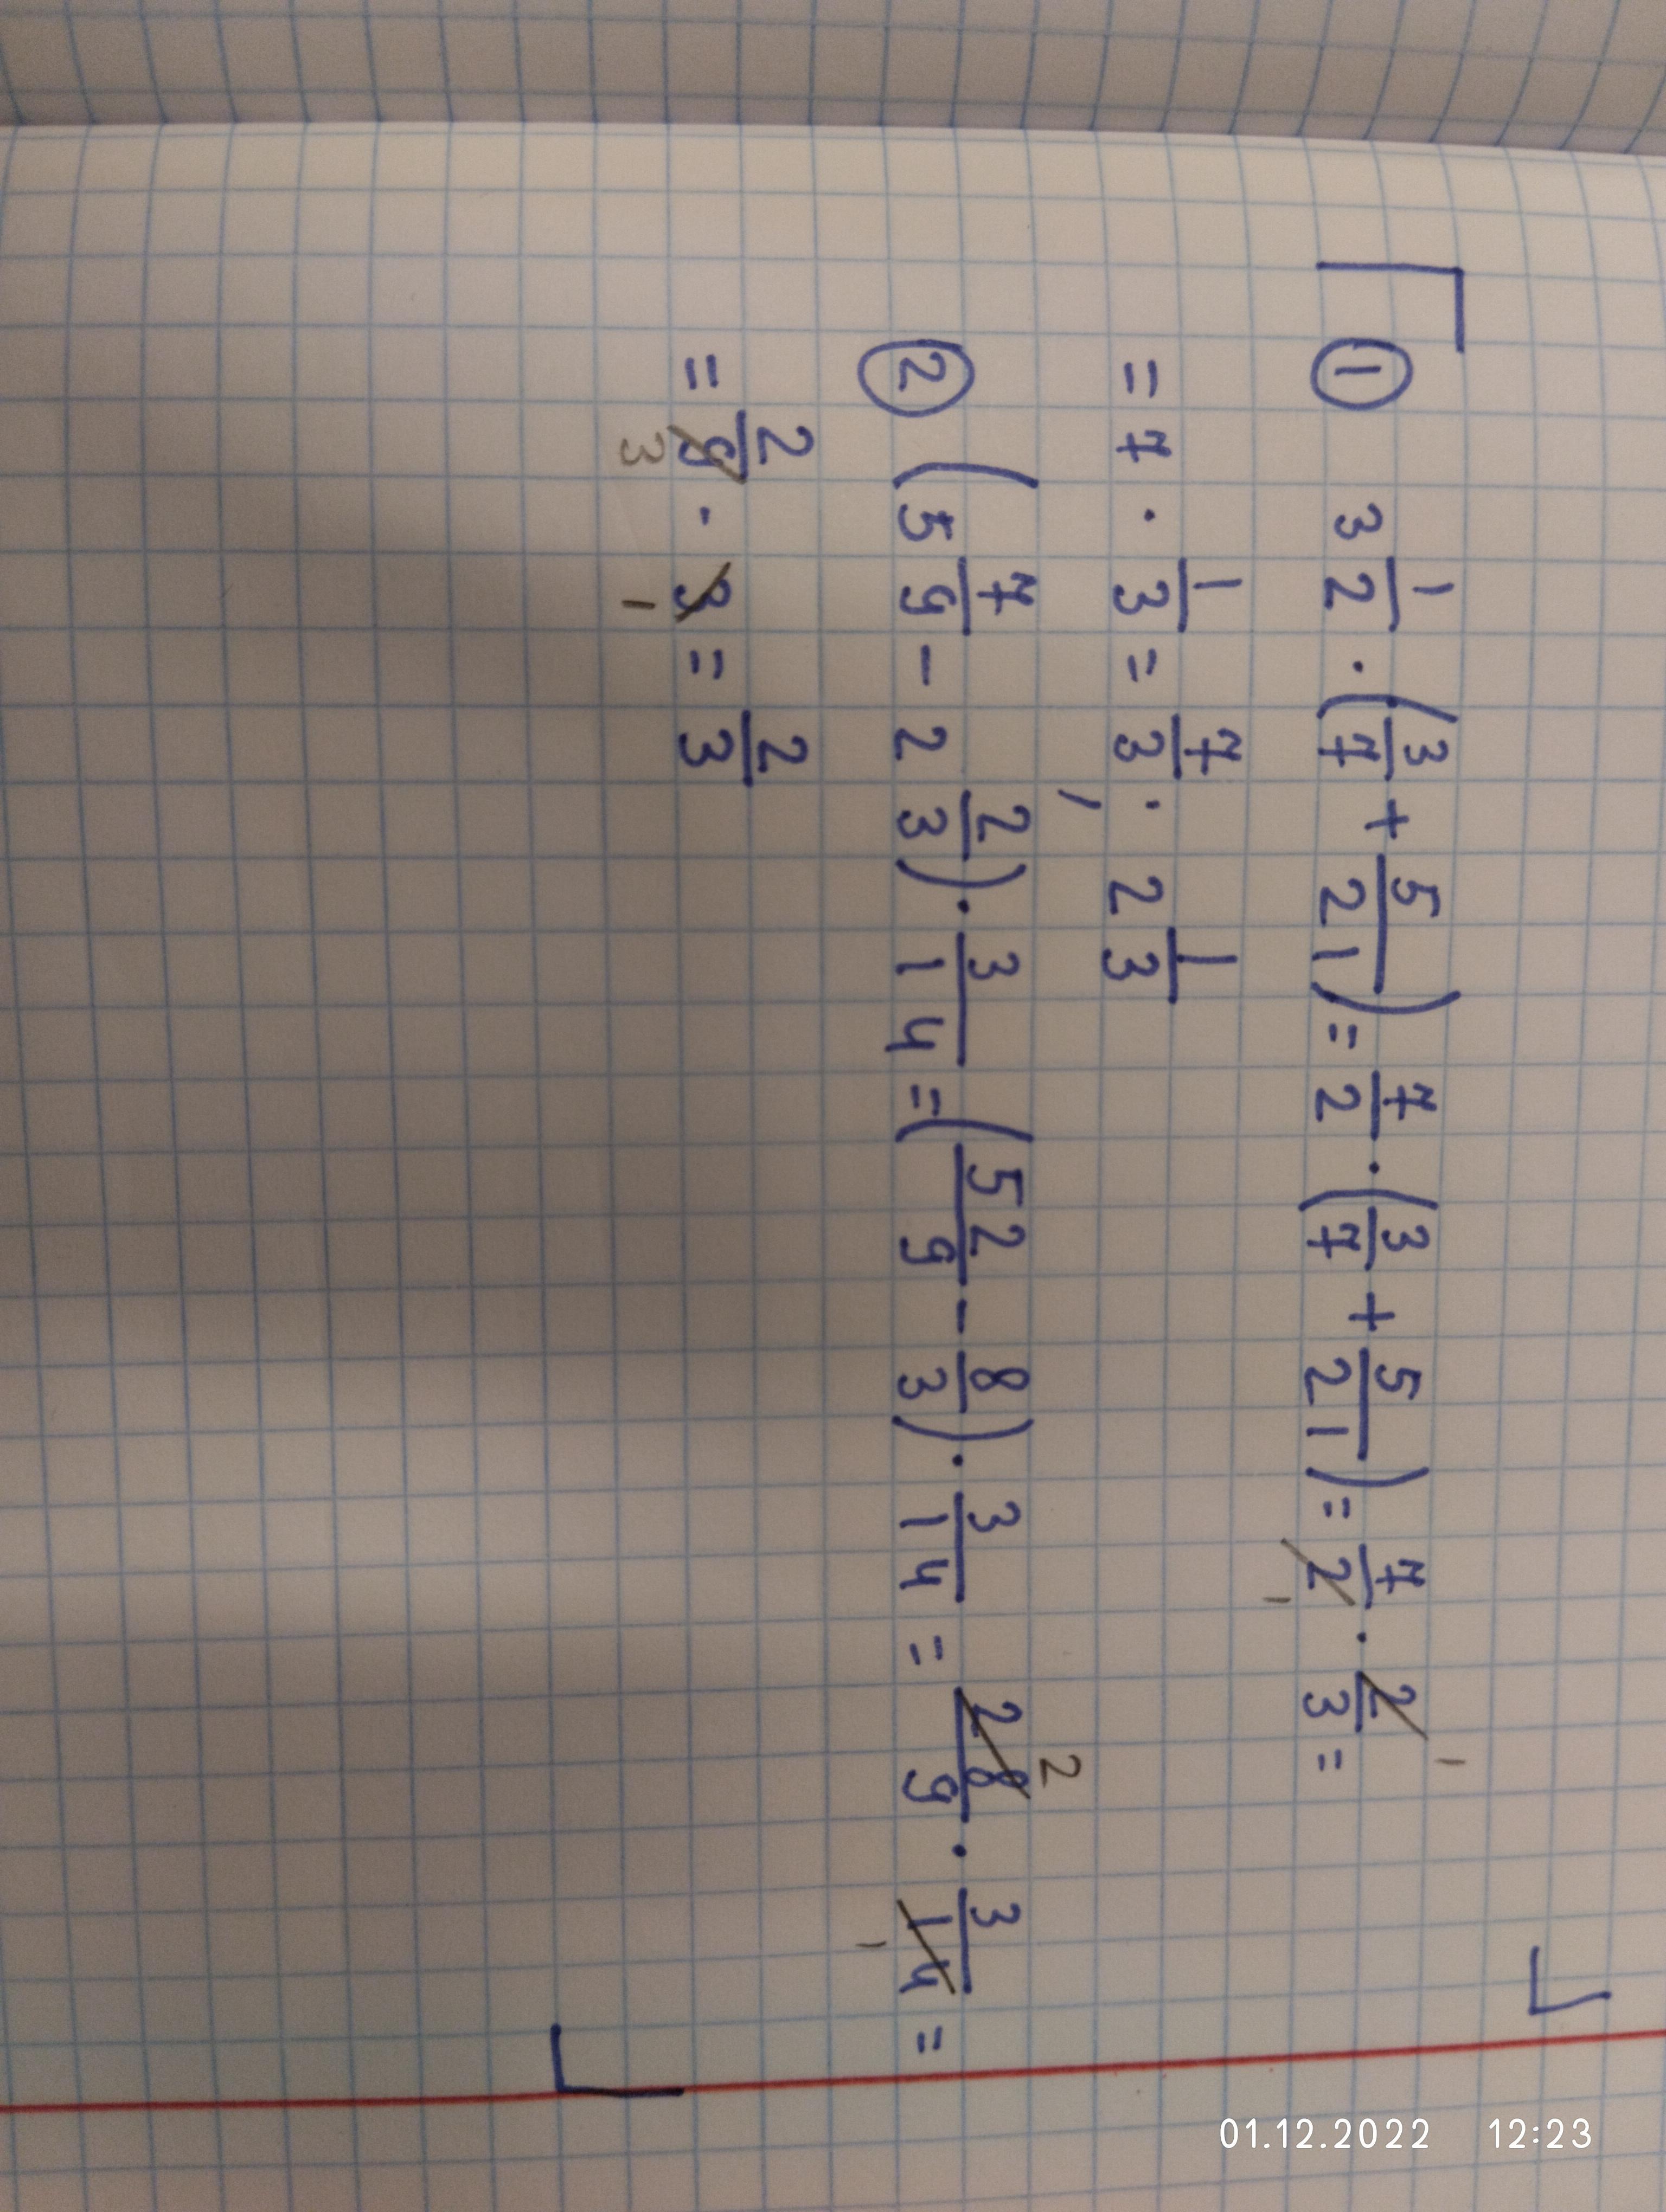 ① 3 1/2 · (3/7 + 5/21) = 7/2 · (3/7 + 5/21) = 7/2 · 2/3 =
1 1
= 7 · 1/3 = 7/3 ; 2 1/3
② (5 7/9 - 2 2/3) · 3/14 = (52/9 - 8/3) · 3/14 = 28/9 · 3/14 =
2 1
= 2/9 · 3 = 2/3
3 1
01.12.2022 12:23